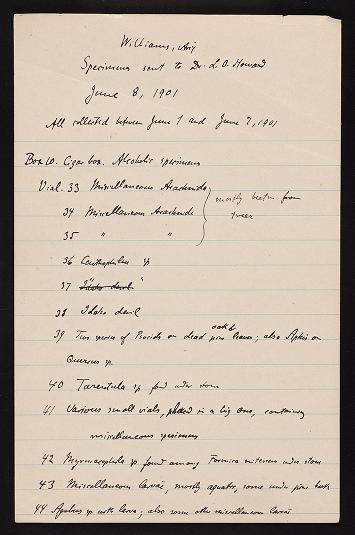 Williams, Ariz
Specimens sent to Dr. L. O. Howard
June 8, 1901
All collected between June 1 and June 7, 1901
Box 10. Cigar box. Alcoholic specimens
Vial. 33 Miscellaneous Arachnida
mostly beaten from trees
34 Miscellaneous Arachnida
35 " "
36 Ceuthophilus sp
37 "Idaho devil"
38 Idaho devil
39 Two species of Psocids on dead oak & pine leaves; also Aphis on
Quercus sp.
40 Tarentula sp found under stone
41 Various small vials, placed in a big one, containing
miscellaneous specimens
42 Myrmecophila sp found among Formica under stone
43 Miscellaneous larvae, mostly aquatic, some under pine bark
44 with larva; also some other miscellaneous larvae